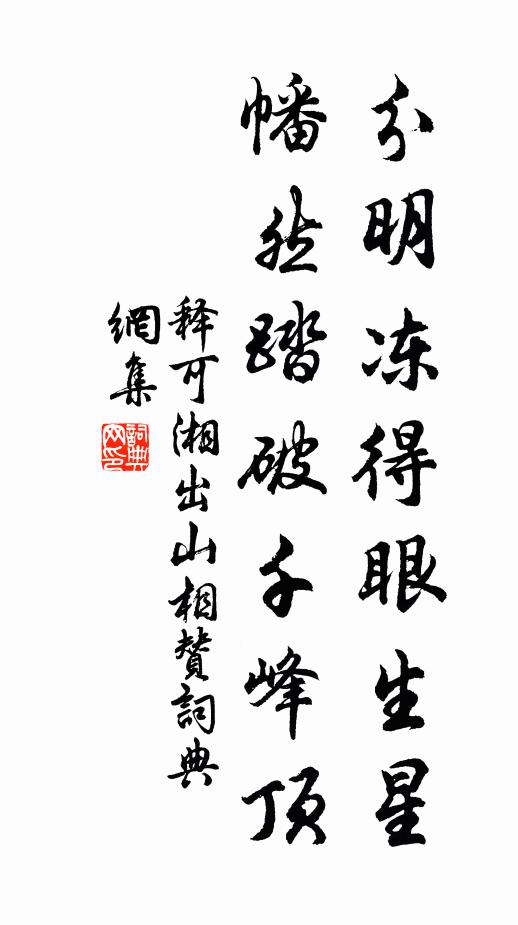 分明冻得眼生星
幡然踏破千峰顶
释可湘出山相赞詞典
網集
詞典網印